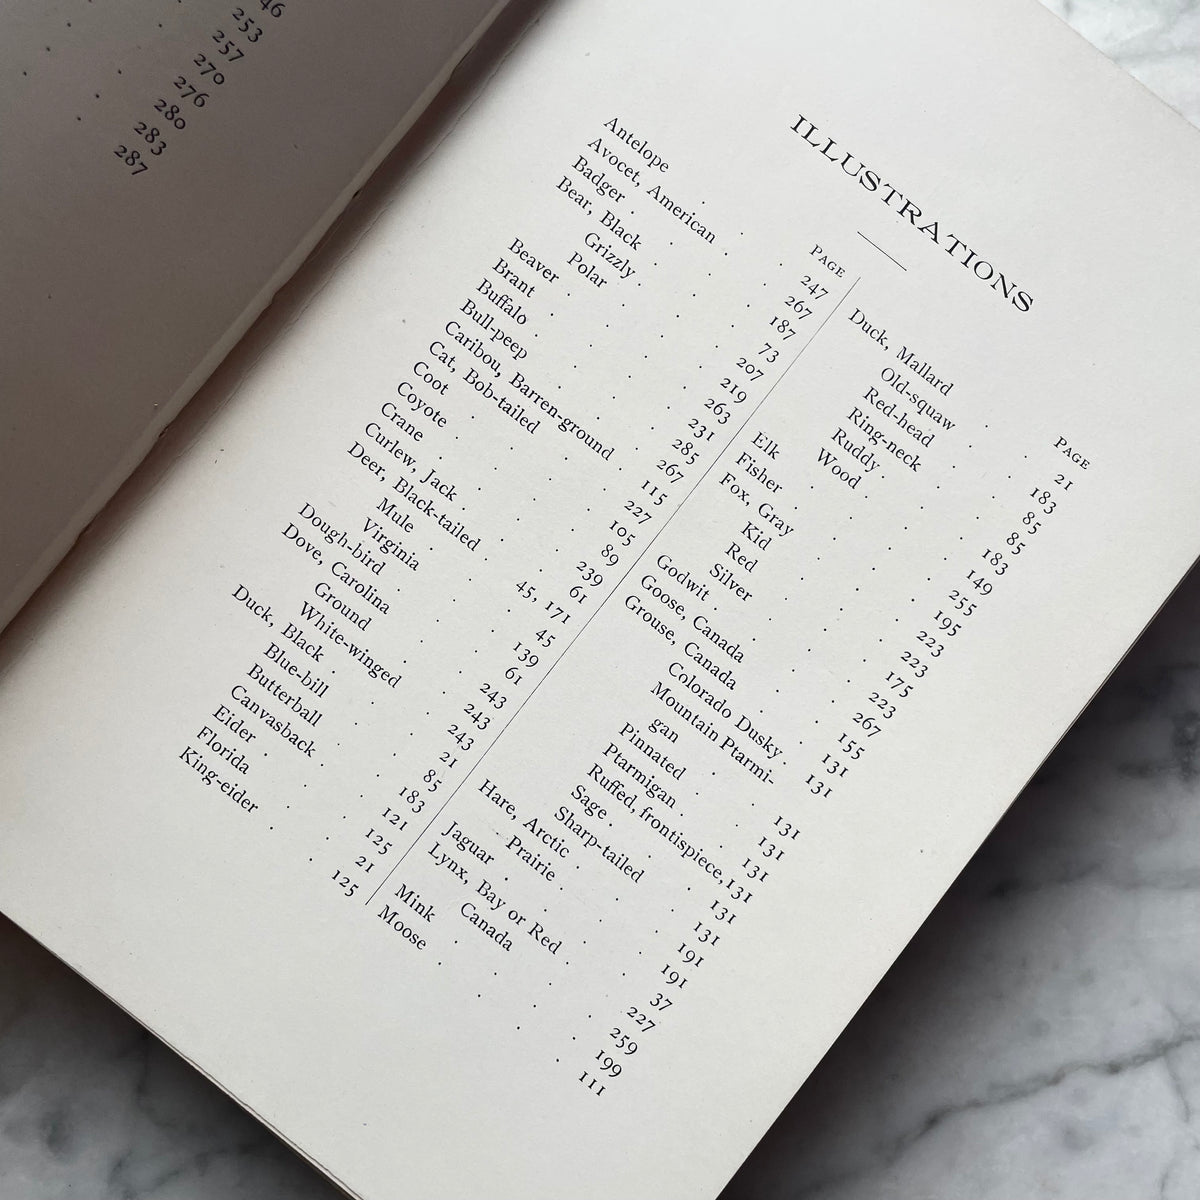 46
253
257
270
276
280
283
287
ILLUSTRATIONS
PAGE
Antelope . . . . 247
Avocet, American . . . 267
Badger . . . . 187
Bear, Black . . . . 73
Grizzly . . . . 207
Polar . . . . 219
Beaver . . . . 263
Brant . . . . 231
Buffalo . . . . 285
Bull-peep . . . . 267
Caribou, Barren-ground . 115
Cat, Bob-tailed . . . 227
Coot . . . . 105
Coyote . . . . 89
Crane . . . . 239
Curlew, Jack . . . 61
Deer, Black-tailed . 45, 171
Mule . . . . 45
Virginia . . . 139
Dough-bird . . . 61
Dove, Carolina . . . 243
Ground . . . 243
White-winged . . 243
Duck, Black . . . 21
Blue-bill . . . 85
Butterball . . . 183
Canvasback . . . 121
Eider . . . . 125
Florida . . . 21
King-eider . . . 125
PAGE
Duck, Mallard . . . 21
Old-squaw . . . 183
Red-head . . . 85
Ring-neck . . . 85
Ruddy . . . . 183
Wood . . . . 149
Elk . . . . 255
Fisher . . . . 195
Fox, Gray . . . . 223
Kid . . . . 223
Red . . . . 175
Silver . . . . 223
Godwit . . . . 267
Goose, Canada . . . 155
Grouse, Canada . . . 131
Colorado Dusky . . 131
Mountain Ptarmi-
gan . . . 131
Pinnated . . . 131
Ptarmigan . . . 131
Ruffed, frontispiece, 131
Sage . . . . 131
Sharp-tailed . . 131
Hare, Arctic . . . 191
Prairie . . . 191
Jaguar . . . . 37
Lynx, Bay or Red . . 227
Canada . . . 259
Mink . . . . 199
Moose . . . . 111